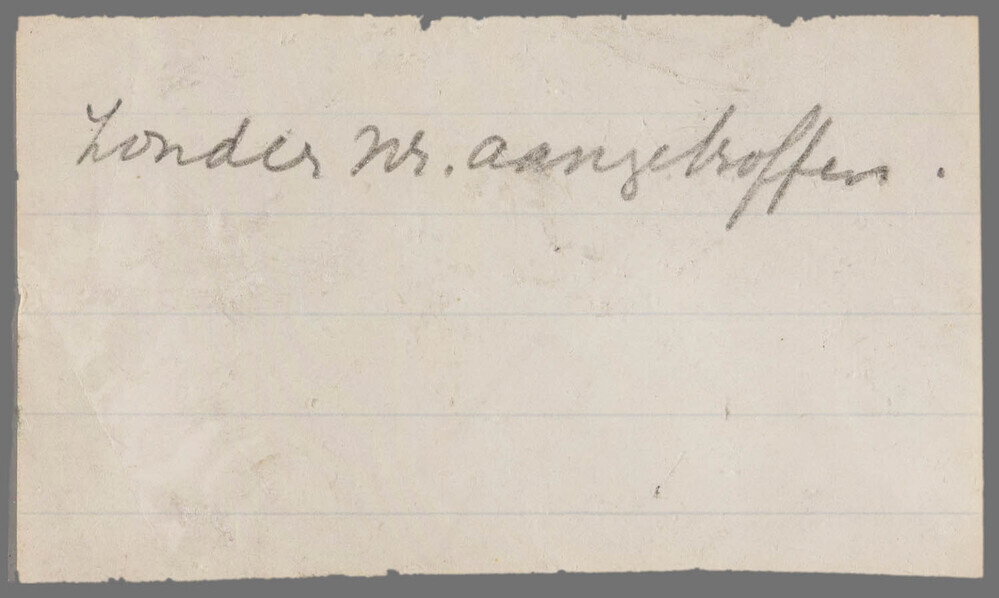 Zonder nr. aangetroffen.